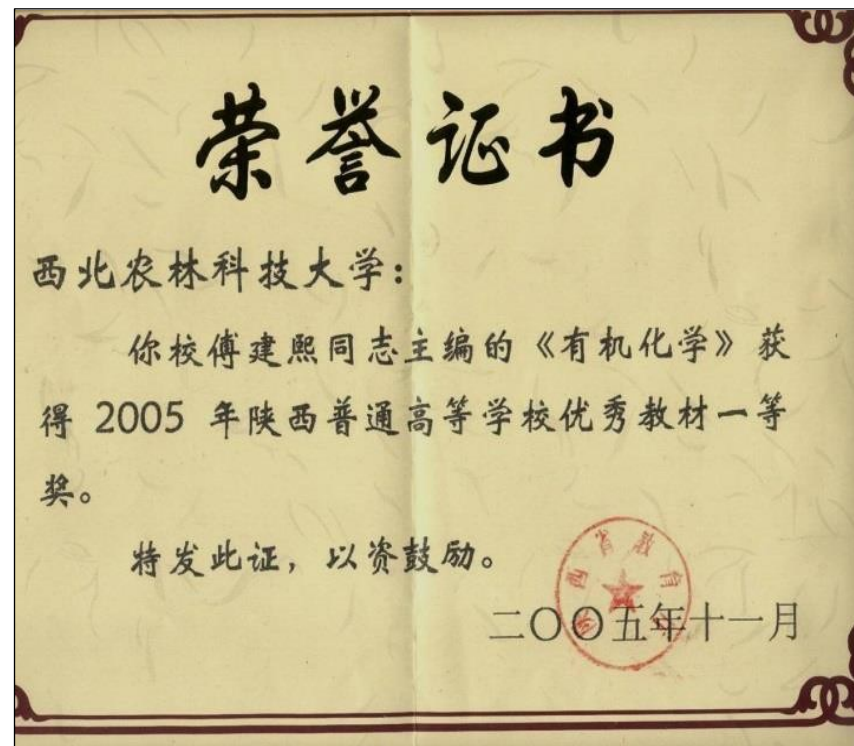 荣誉证书
西北农林科技大学：
你校傅建熙同志主编的《有机化学》获
得 2005 年陕西普通高等学校优秀教材一等
奖。
特发此证，以资鼓励。
陕西省教育厅
二〇〇五年十一月